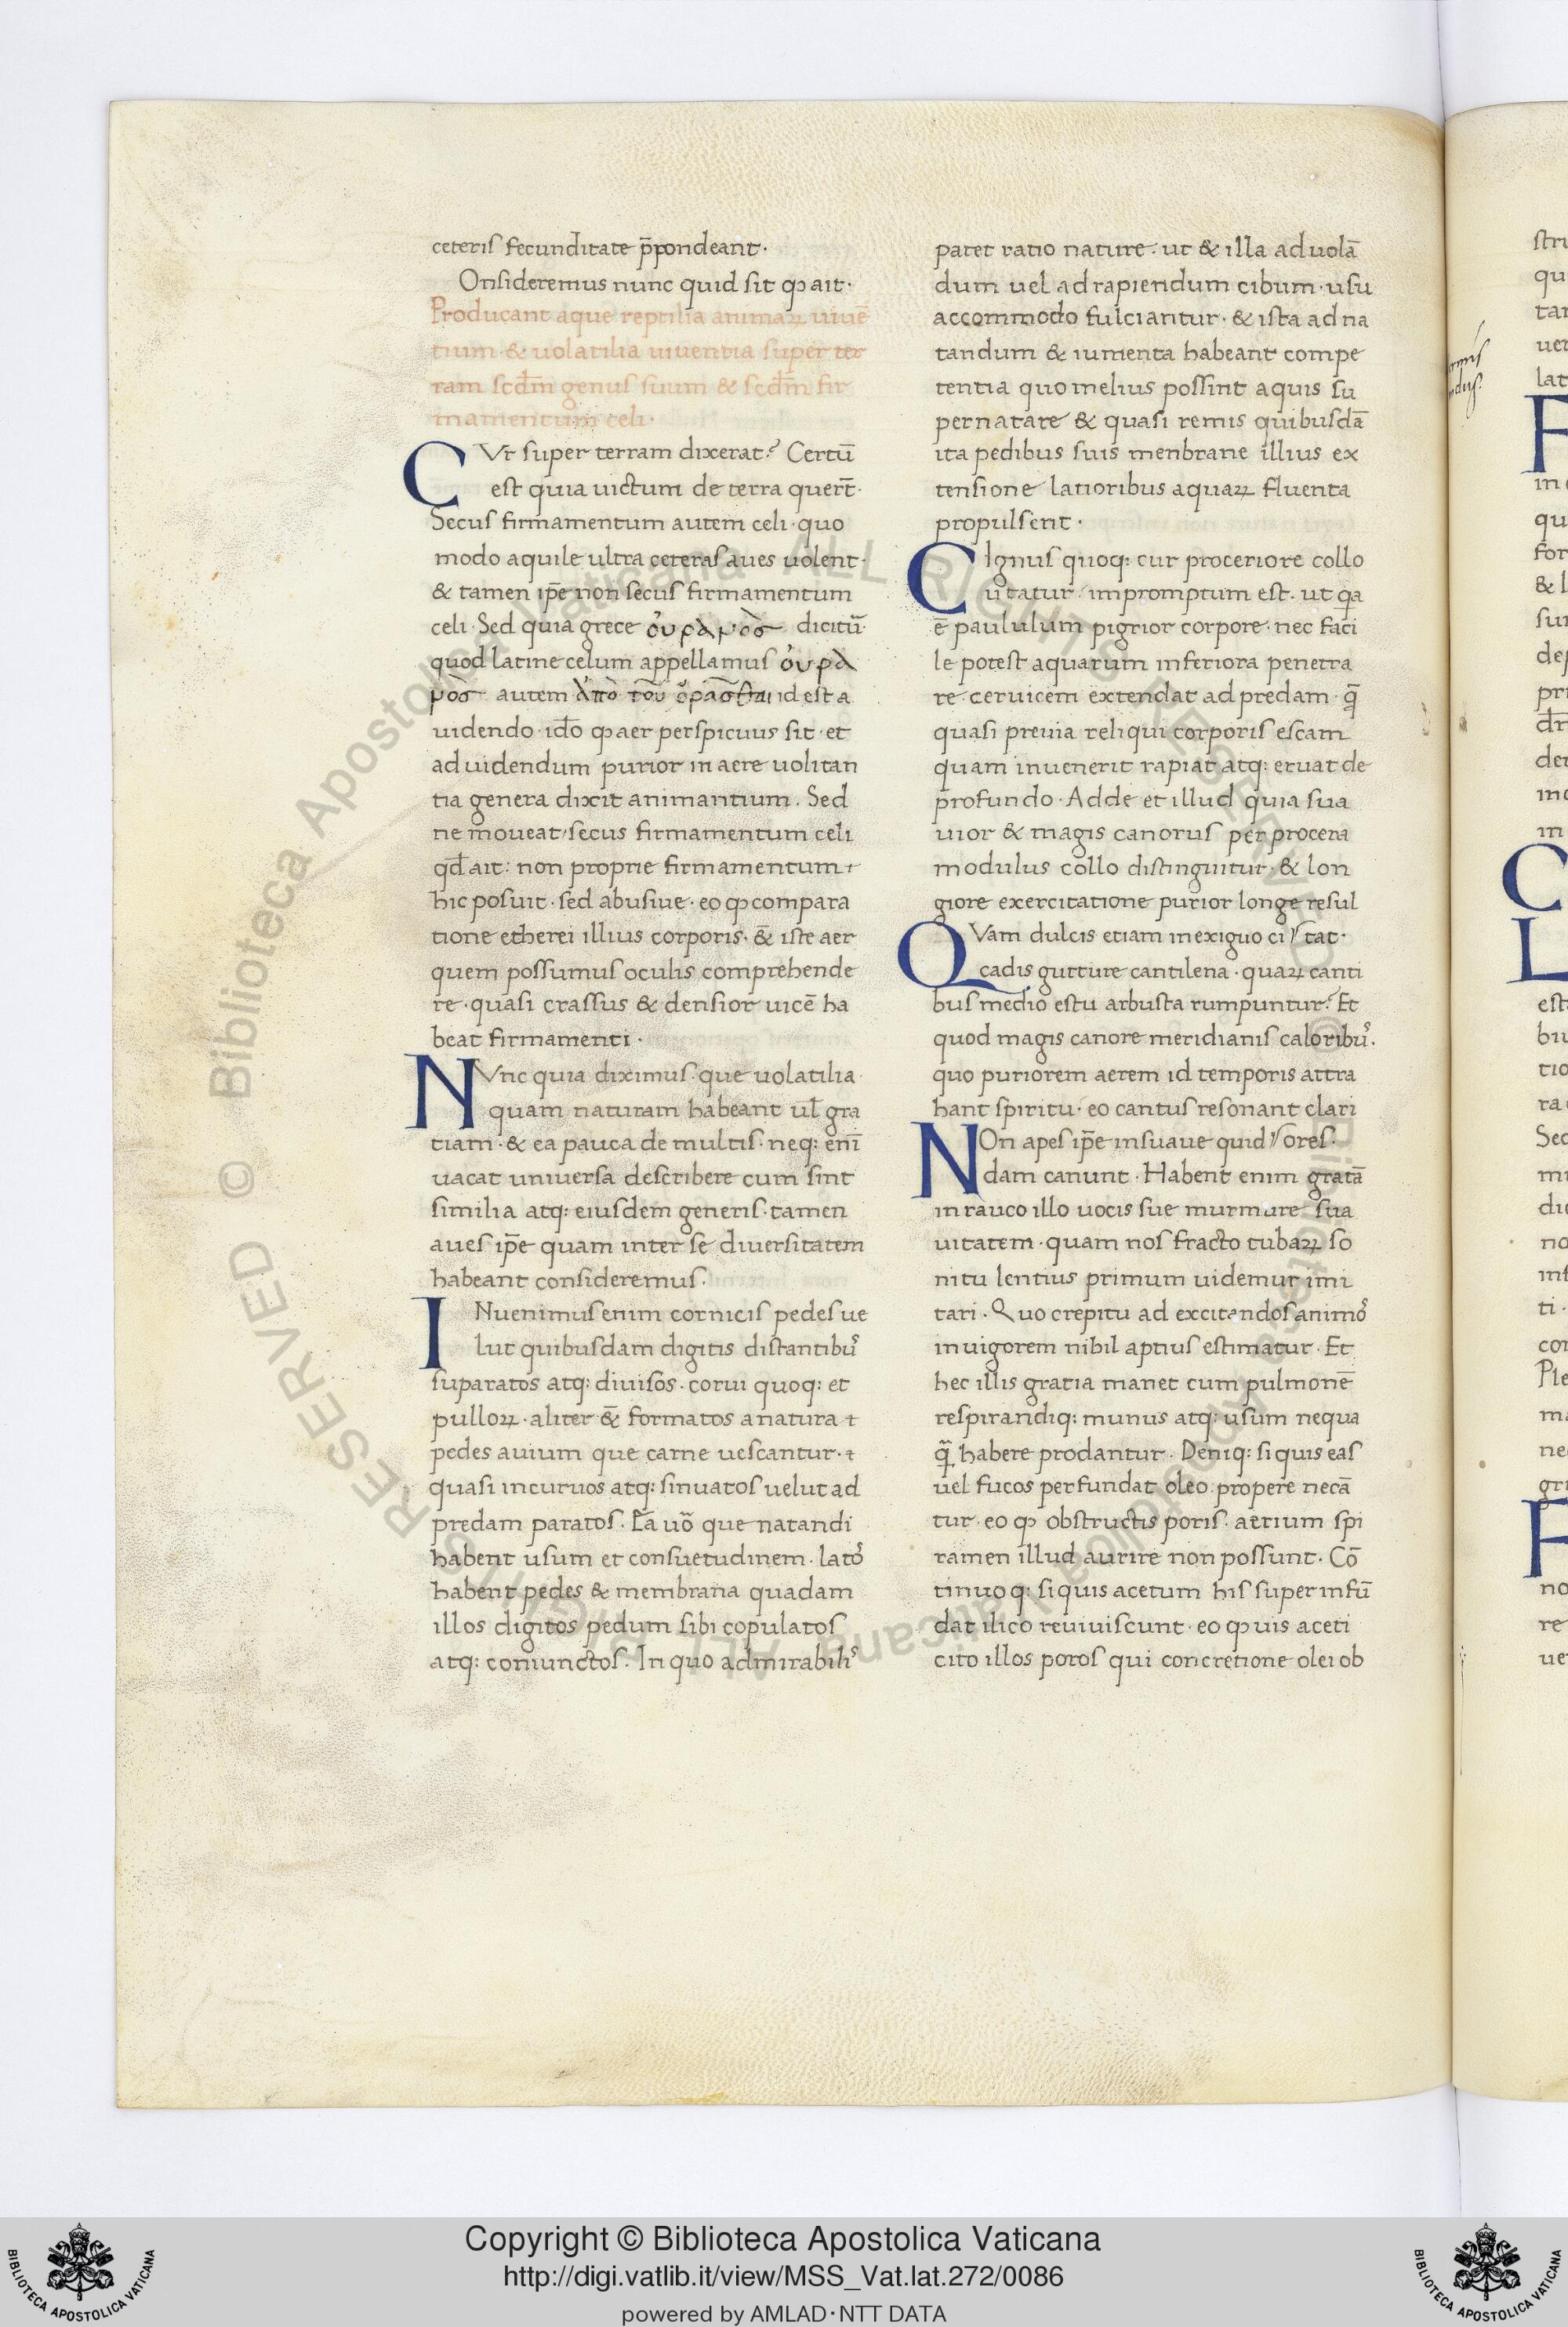 ceteris fecunditate p̄pondeant·
Onsideremus nunc quid sit ꝙ ait·
Producant aque reptilia animaꝝ uiuē
tium· & uolatilia uiuentia super ter
ram scdm̄ genus suum & scdm̄ fir
mamentum celi·
CVr super terram dixerat? Certū
est quia uictum de terra querēt·
Secus firmamentum autem celi· quo
modo aquile ultra ceteras aues uolent·
& tamen ip̄e non secus firmamentum
celi· Sed quia grece οὐρανὸσ dicitū·
quod latine celum appellamus οὐρα
νὸσ autem ἀπὸ τοῦ ὁρᾶσθαι id est a
uidendo· id̄o ꝙ aer perspicuus sit· et
ad uidendum purior in aere uolitan
tia genera dixit animantium. Sed
ne moueat· secus firmamentum celi
qd̄ ait: non proprie firmamentum
hic posuit· sed abusiue· eo ꝙ compara
tione etherei illius corporis· & iste aer
quem possumus oculis comprehende
re· quasi crassus & densior uicē ha
beat firmamenti·
NVnc quia diximus· que uolatilia·
quam naturam habeant ul̄ gra
tiam· & ea pauca de multis· neq: enī
uacat uniuersa describere cum sint
similia atq: eiusdem generis· tamen
aues ip̄e quam inter se diuersitatem
habeant consideremus·
INuenimus enim cornicis pedes ue
lut quibusdam digitis distantibꝰ
suparatos atq: diuisos· corui quoq: et
pulloꝝ· aliter & formatos a natura
pedes auium que carne uescantur·
quasi incuruos atq: sinuatos uelut ad
predam paratos· Ea uō que natandi
habent usum et consuetudinem· latoꝰ
habent pedes & membrana quadam
illos digitos pedum sibi copulatos
atq: coniunctos· In quo admirabilis
patet ratio nature· ut & illa ad uolā
dum uel ad rapiendum cibum· usu
accommodo fulciantur· & ista ad na
tandum & iumenta habeant compe
tentia quo melius possint aquis su
pernatare & quasi remis quibusdā
ita pedibus suis menbrane illius ex
tensione latioribus aquaꝝ fluenta
propulsent·
CIgnus quoq: cur proceriore collo
utatur· impromptum est· ut qa
ē paululum pigrior corpore· nec faci
le potest aquarum inferiora penetra
re· ceruicem extendat ad predam· q̄
quasi preuia reliqui corporis escam
quam inuenerit rapiat atq: eruat de
profundo· Adde et illud quia sua
uior & magis canorus per procera
modulus collo distinguitur· & lon
giore exercitatione purior longe resul
QVam dulcis etiam in exiguo ci tat·
cadis gutture cantilena· quaꝝ canti
bus medio estu arbusta rumpuntur? Et
quod magis canore meridianis caloribꝰ·
quo puriorem aerem id temporis attra
hant spiritu· eo cantus resonant clari
NOn apes ip̄e insuaue quid ores·
dam canunt· Habent enim gratā
in rauco illo uocis sue murmure sua
uitatem· quam nos fracto tubaꝝ so
nitu lentius primum uidemur imi
tari· Quo crepitu ad excitandos animoꝰ
in uigorem nihil aptius estimatur· Et
hec illis gratia manet cum pulmonē
respirandiq: munus atq: usum nequa
q̄ habere prodantur· Deniq: si quis eas
uel fucos perfundat oleo propere necā
tur· eo ꝙ obstructis poris· aerium spi
ramen illud aurire non possunt· Cō
tinuoq: si quis acetum his superinfū
dat ilico reuiuiscunt· eo ꝙ uis aceti
cito illos poros qui concretione olei ob
Copyright © Biblioteca Apostolica Vaticana
http://digi.vatlib.it/view/MSS_Vat.lat.272/0086
powered by AMLAD·NTT DATA
BIBLIOTECA APOSTOLICA VATICANA
BIBLIOTECA APOSTOLICA VATICANA